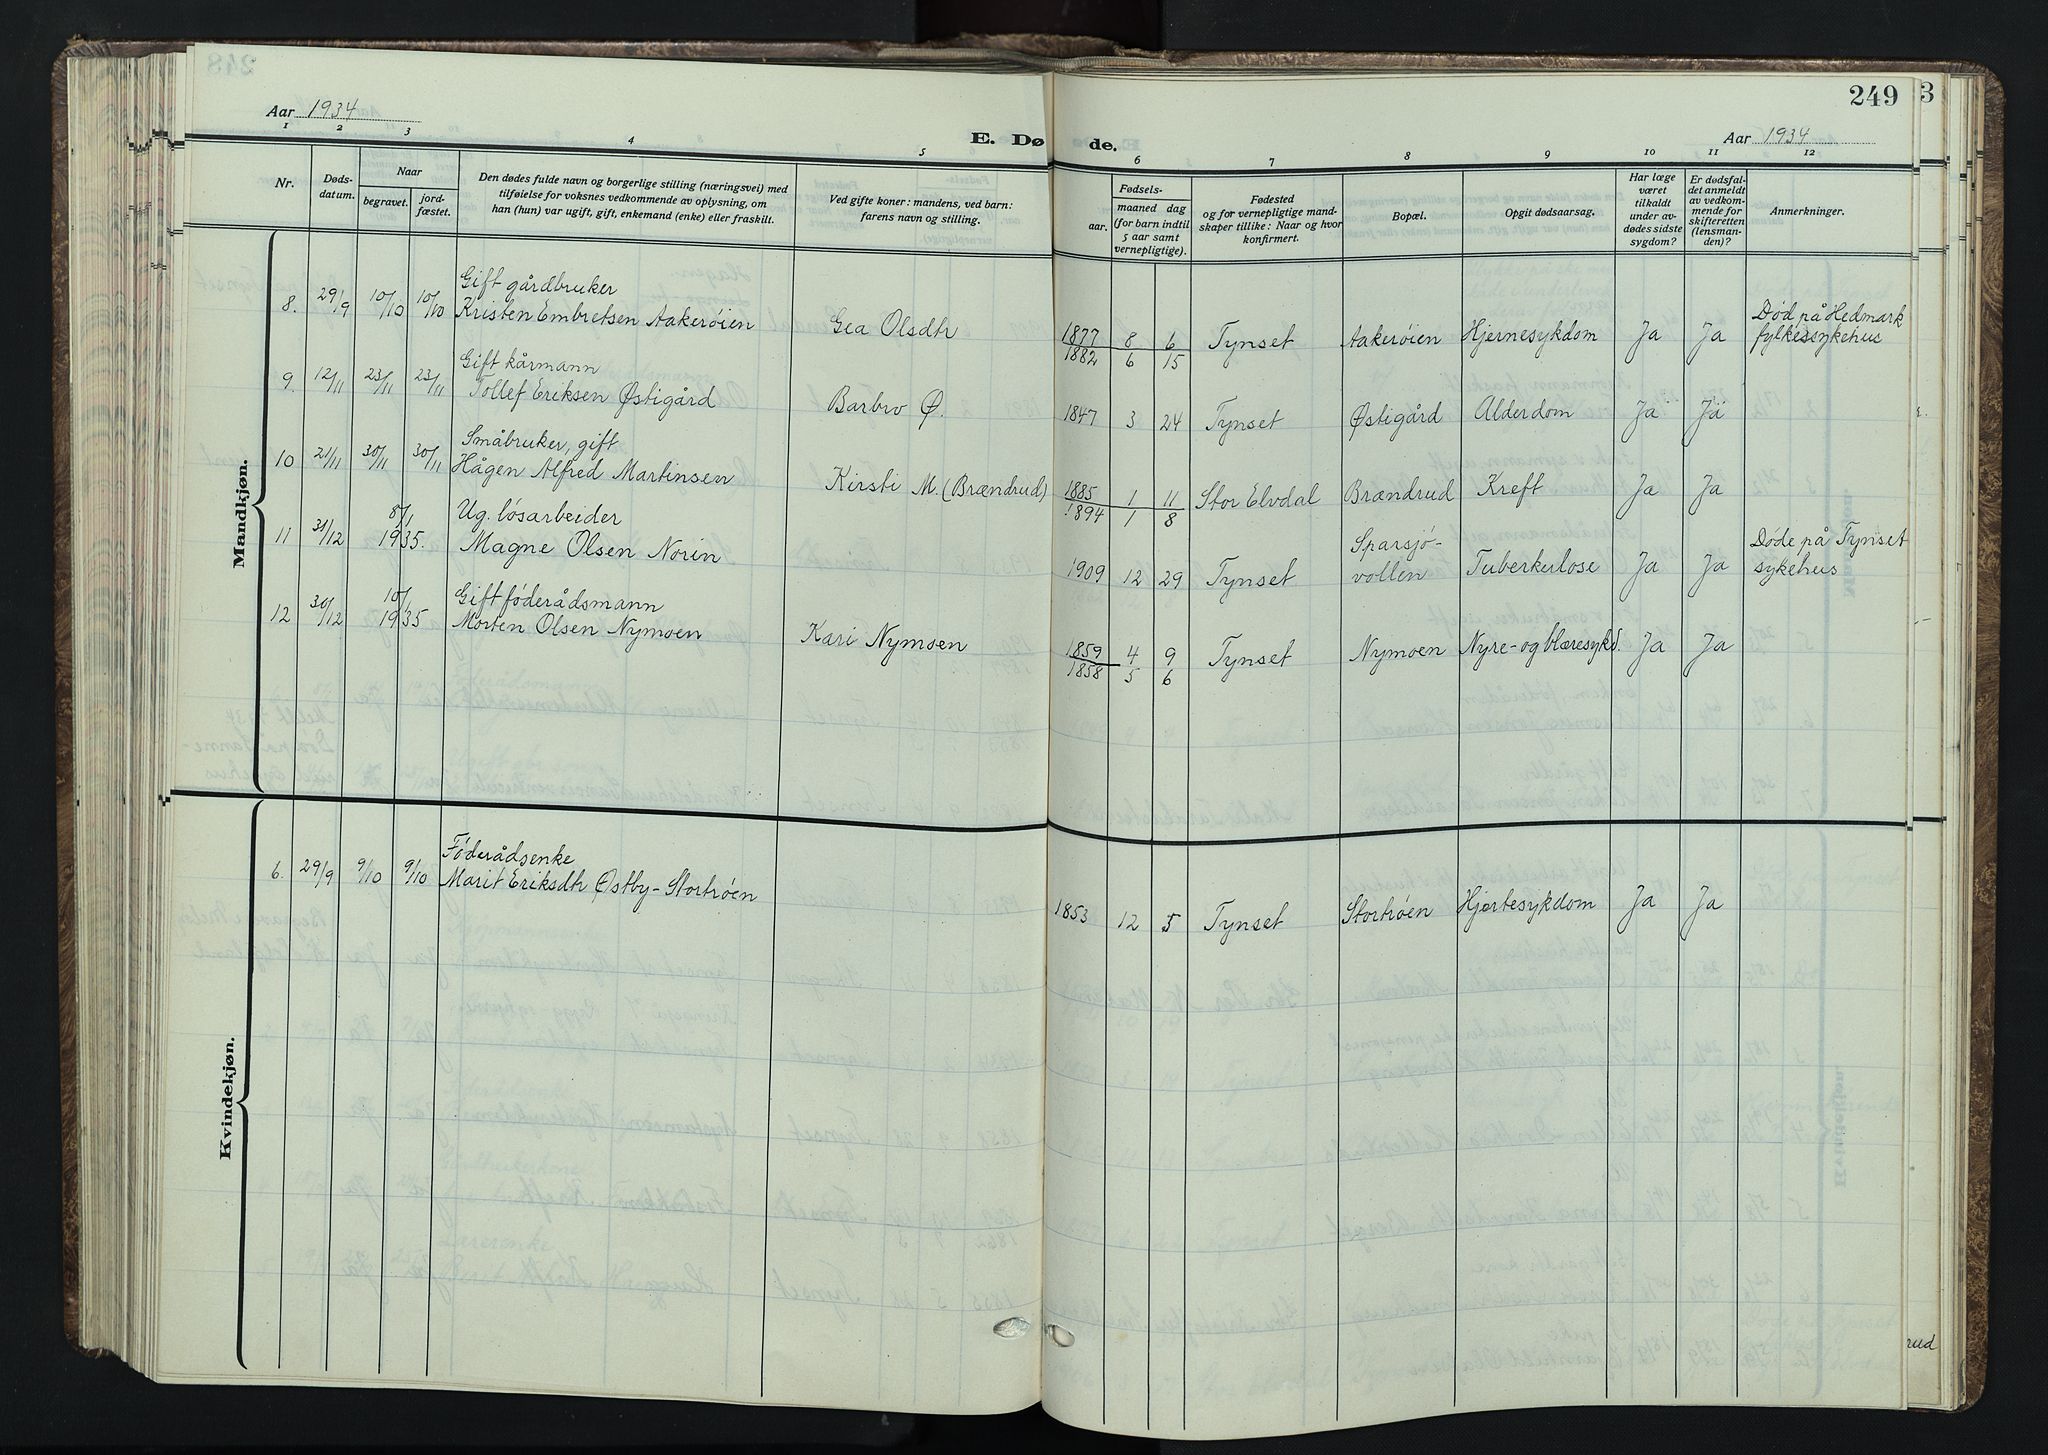 Aar 1934
249
3
E. Dø de.
Aar 1934
1 2 3 4 5 6 7 8 9 10 11 12
Nr.
Døds-
datum.
Naar
begravet.
jord-
fæstet.
Den dødes fulde navn og borgerlige stilling (næringsvei) med
tilføielse for voksnes vedkommende av oplysning, om
han (hun) var ugift, gift, enkemand (enke) eller fraskilt.
Ved gifte koner: mandens, ved barn:
farens navn og stilling.
Fødsels-
aar.
maaned dag
(for barn indtil
5 aar samt
vernepligtige).
Fødested
og for vernepligtige mand-
skaper tillike: Naar og hvor
konfirmert.
Bopæl.
Opgit dødsaarsag.
Har læge
været
tilkaldt
under av-
dødes sidste
sygdom?
Er dødsfal-
det anmeldt
av vedkom-
mende for
skifteretten
(lensman-
den)?
Anmerkninger.
Mandkjøn.
Gift gårdbruker
8. 29/9 10/10 10/10 Kristen Embretsen Aakerøien Gea Olsdtr 1877 8 6 Tynset Aakerøien Hjernesykdom Ja Ja Død på Hedmark
1882 6 15 fylkessykehus
Gift kårmann
9. 12/11 23/11 23/11 Tollef Eriksen Østigård Barbro Ø. 1847 3 24 Tynset Østigård Alderdom Ja Ja
Småbruker, gift
10 21/11 30/11 30/11 Hågen Alfred Martinsen Kirsti M. (Brændrud) 1885 1 11 Stor Elvdal Brændrud Kreft Ja Ja
1894 1 8
Ug. løsarbeider
11 31/12 8/1 1935. Magne Olsen Norin 1909 12 29 Tynset Sparsjø-
vollen Tuberkulose Ja Ja Døde på Tynset
sykehus
Gift føderådsmann
12 30/12 10/1 1935 Morten Olsen Nymoen Kari Nymoen 1859 4 9 Tynset Nymoen Nyre- og blæresykd. Ja Ja
1858 5 6
Kvindekjøn.
Føderådsenke
6. 29/9 9/10 9/10 Marit Eriksdtr Østby-Stortrøen 1853 12 5 Tynset Stortrøen Hjertesykdom Ja Ja
rud